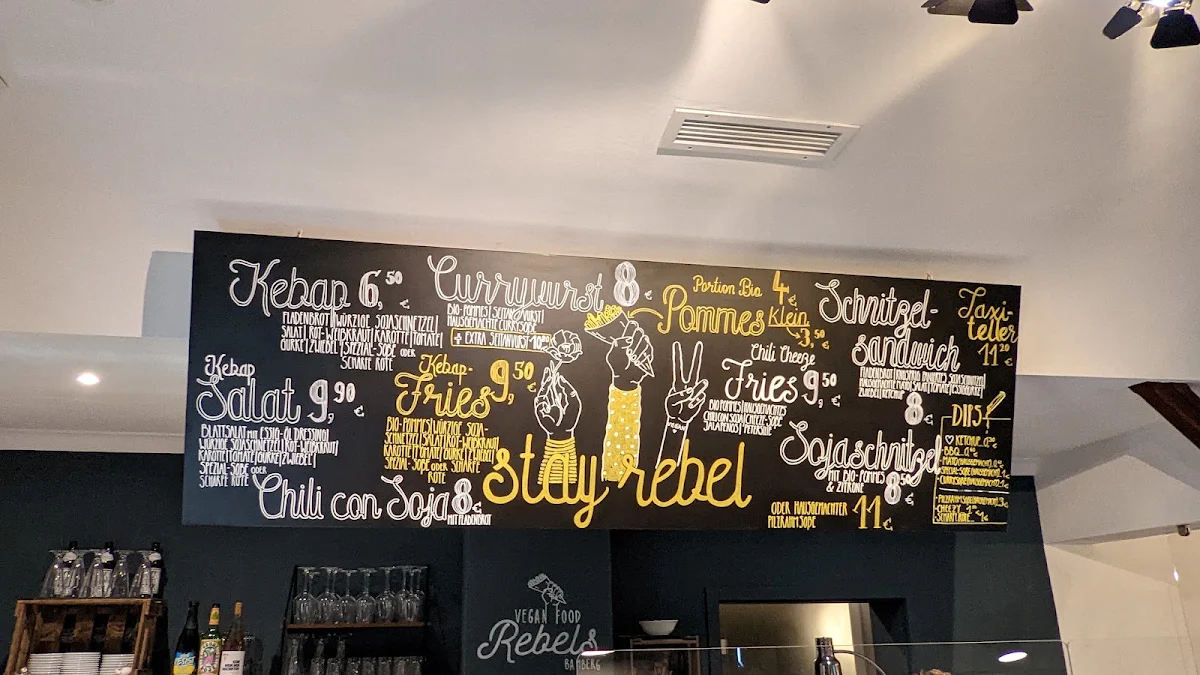 Kebap 6,50 €
FLADENBROT|WÜRZIGE SOJASCHNETZEL|
SALAT|ROT-WEIßKRAUT|KAROTTE|TOMATE|
GURKE|ZWIEBEL|SPEZIAL-SOßE ODER
SCHARFE ROTE
Kebap
Salat 9,90 €
BLATTSALAT MIT ESSIG-ÖL DRESSING|
WÜRZIGE SOJASCHNETZEL|ROT-WEIßKRAUT|
KAROTTE|TOMATE|GURKE|ZWIEBEL|
SPEZIAL-SOßE ODER
SCHARFE ROTE
Chili con Soja 8 €
MIT FLADENBROT
Currywurst 8 €
BIO-POMMES|SEITANWURST|
HAUSGEMACHTE CURRYSOßE
+ EXTRA SEITANWURST
Kebap-
Fries 9,50 €
BIO-POMMES|WÜRZIGE SOJA-
SCHNETZEL|SALAT|ROT-WEIßKRAUT
KAROTTE|TOMATE|GURKE|ZWIEBEL|
SPEZIAL-SOßE ODER SCHARFE
ROTE
stay rebel
VEGAN
Portion Bio 4 €
Pommes Klein
3,50 €
Chili Cheeze
Fries 9,50 €
BIO POMMES|HAUSGEMACHTES
CHILI CON SOJA|CHEEZE-SOßE
JALAPENOS|PETERSILIE
Schnitzel-
sandwich
8 €
Sojaschnitzel
MIT BIO-POMMES
& ZITRONE
8,50 €
ODER HAUSGEMACHTER
PILZRAHMSOßE 11 €
Taxi-
teller
11,20 €
DIPS
KETCHUP
BBQ
CHEEZY
VEGAN FOOD
Rebels
BAMBERG